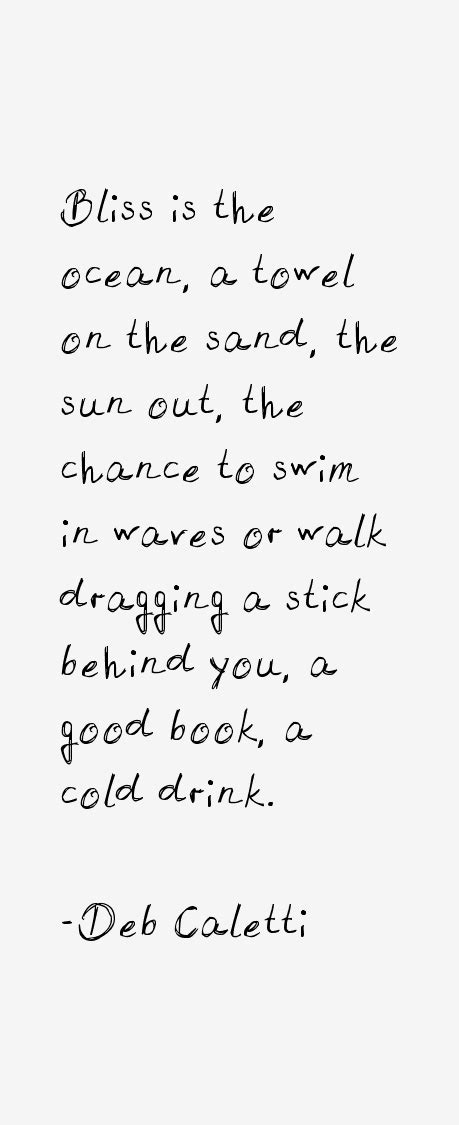 Bliss is the
ocean, a towel
on the sand, the
sun out, the
chance to swim
in waves or walk
dragging a stick
behind you, a
good book, a
cold drink.
-Deb Caletti